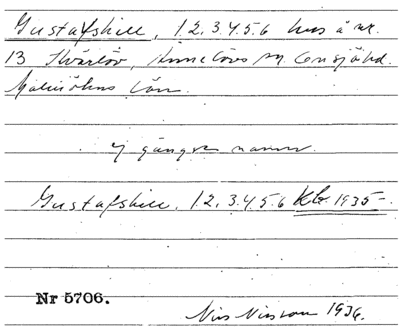 Gustafshill, 1.2.3.4.5.6 hus å nr.
13 Kvärlöv, Annelövs sn. Onsjö hd.
Malmöhus län.
Ej gängse namn.
Gustafshill, 1.2.3.4.5.6 Kb. 1935-.
Nr 5706.
Nils Nilsson 1936.